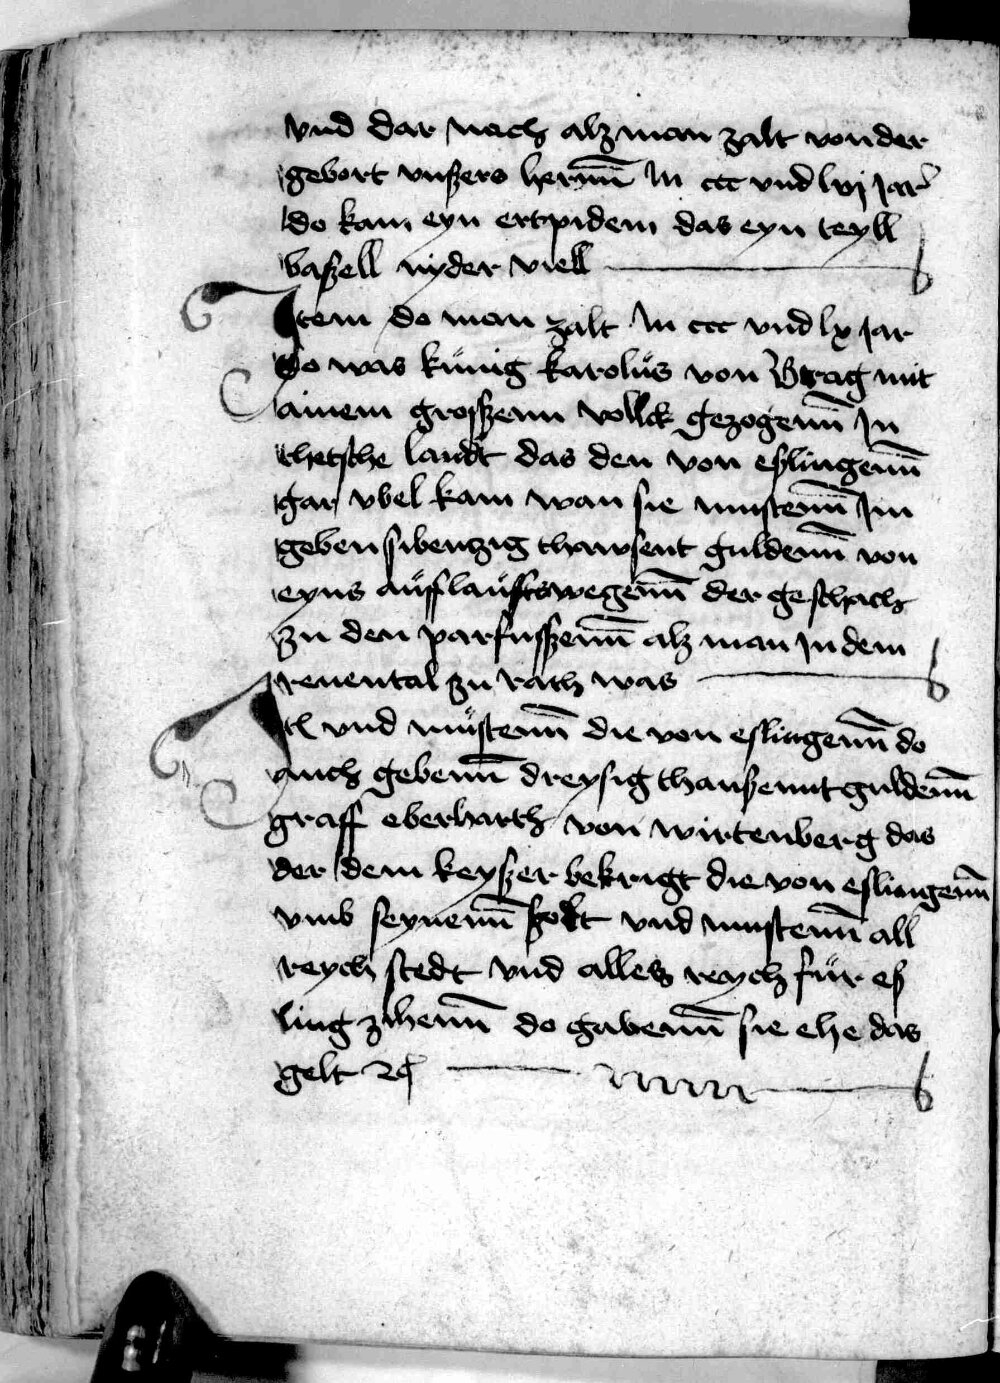 vnd dar nach alz man zalt von der
gebort vnßers herrnn̄ M ccc vnd lvj Jar
do kam eyn ertpidem das eyn teyll
baßell nyder viell
Item do man zalt M ccc vnd lx Jar
do was kŭnig karolŭs von Prag mit
ainem grosßenn vollck gezogenn̄ Jn
thetsche landt das den von eßlingenn̄
gar vbel kam wan sie mustenn̄ Jm
geben sibenzig thawsent guldenn̄ von
eyns aŭfflaŭffts wegenn̄ der geschach
zu den parfusßenn̄ alz man Jn dem
reuental zu rath was
vnd mŭstenn̄ die von eslingenn̄ do
auch gebenn̄ dreysig thaußennt guldenn̄
graff eberharth von wirtenberg das
der dem keyßer bekrigt die von eslingenn̄
vmb seynenn̄ ßolt vnd mustenn̄ all
reych stedt vnd alles reych fŭr eß
ling zihenn̄ do gabenn̄ sie ehe das
gelt